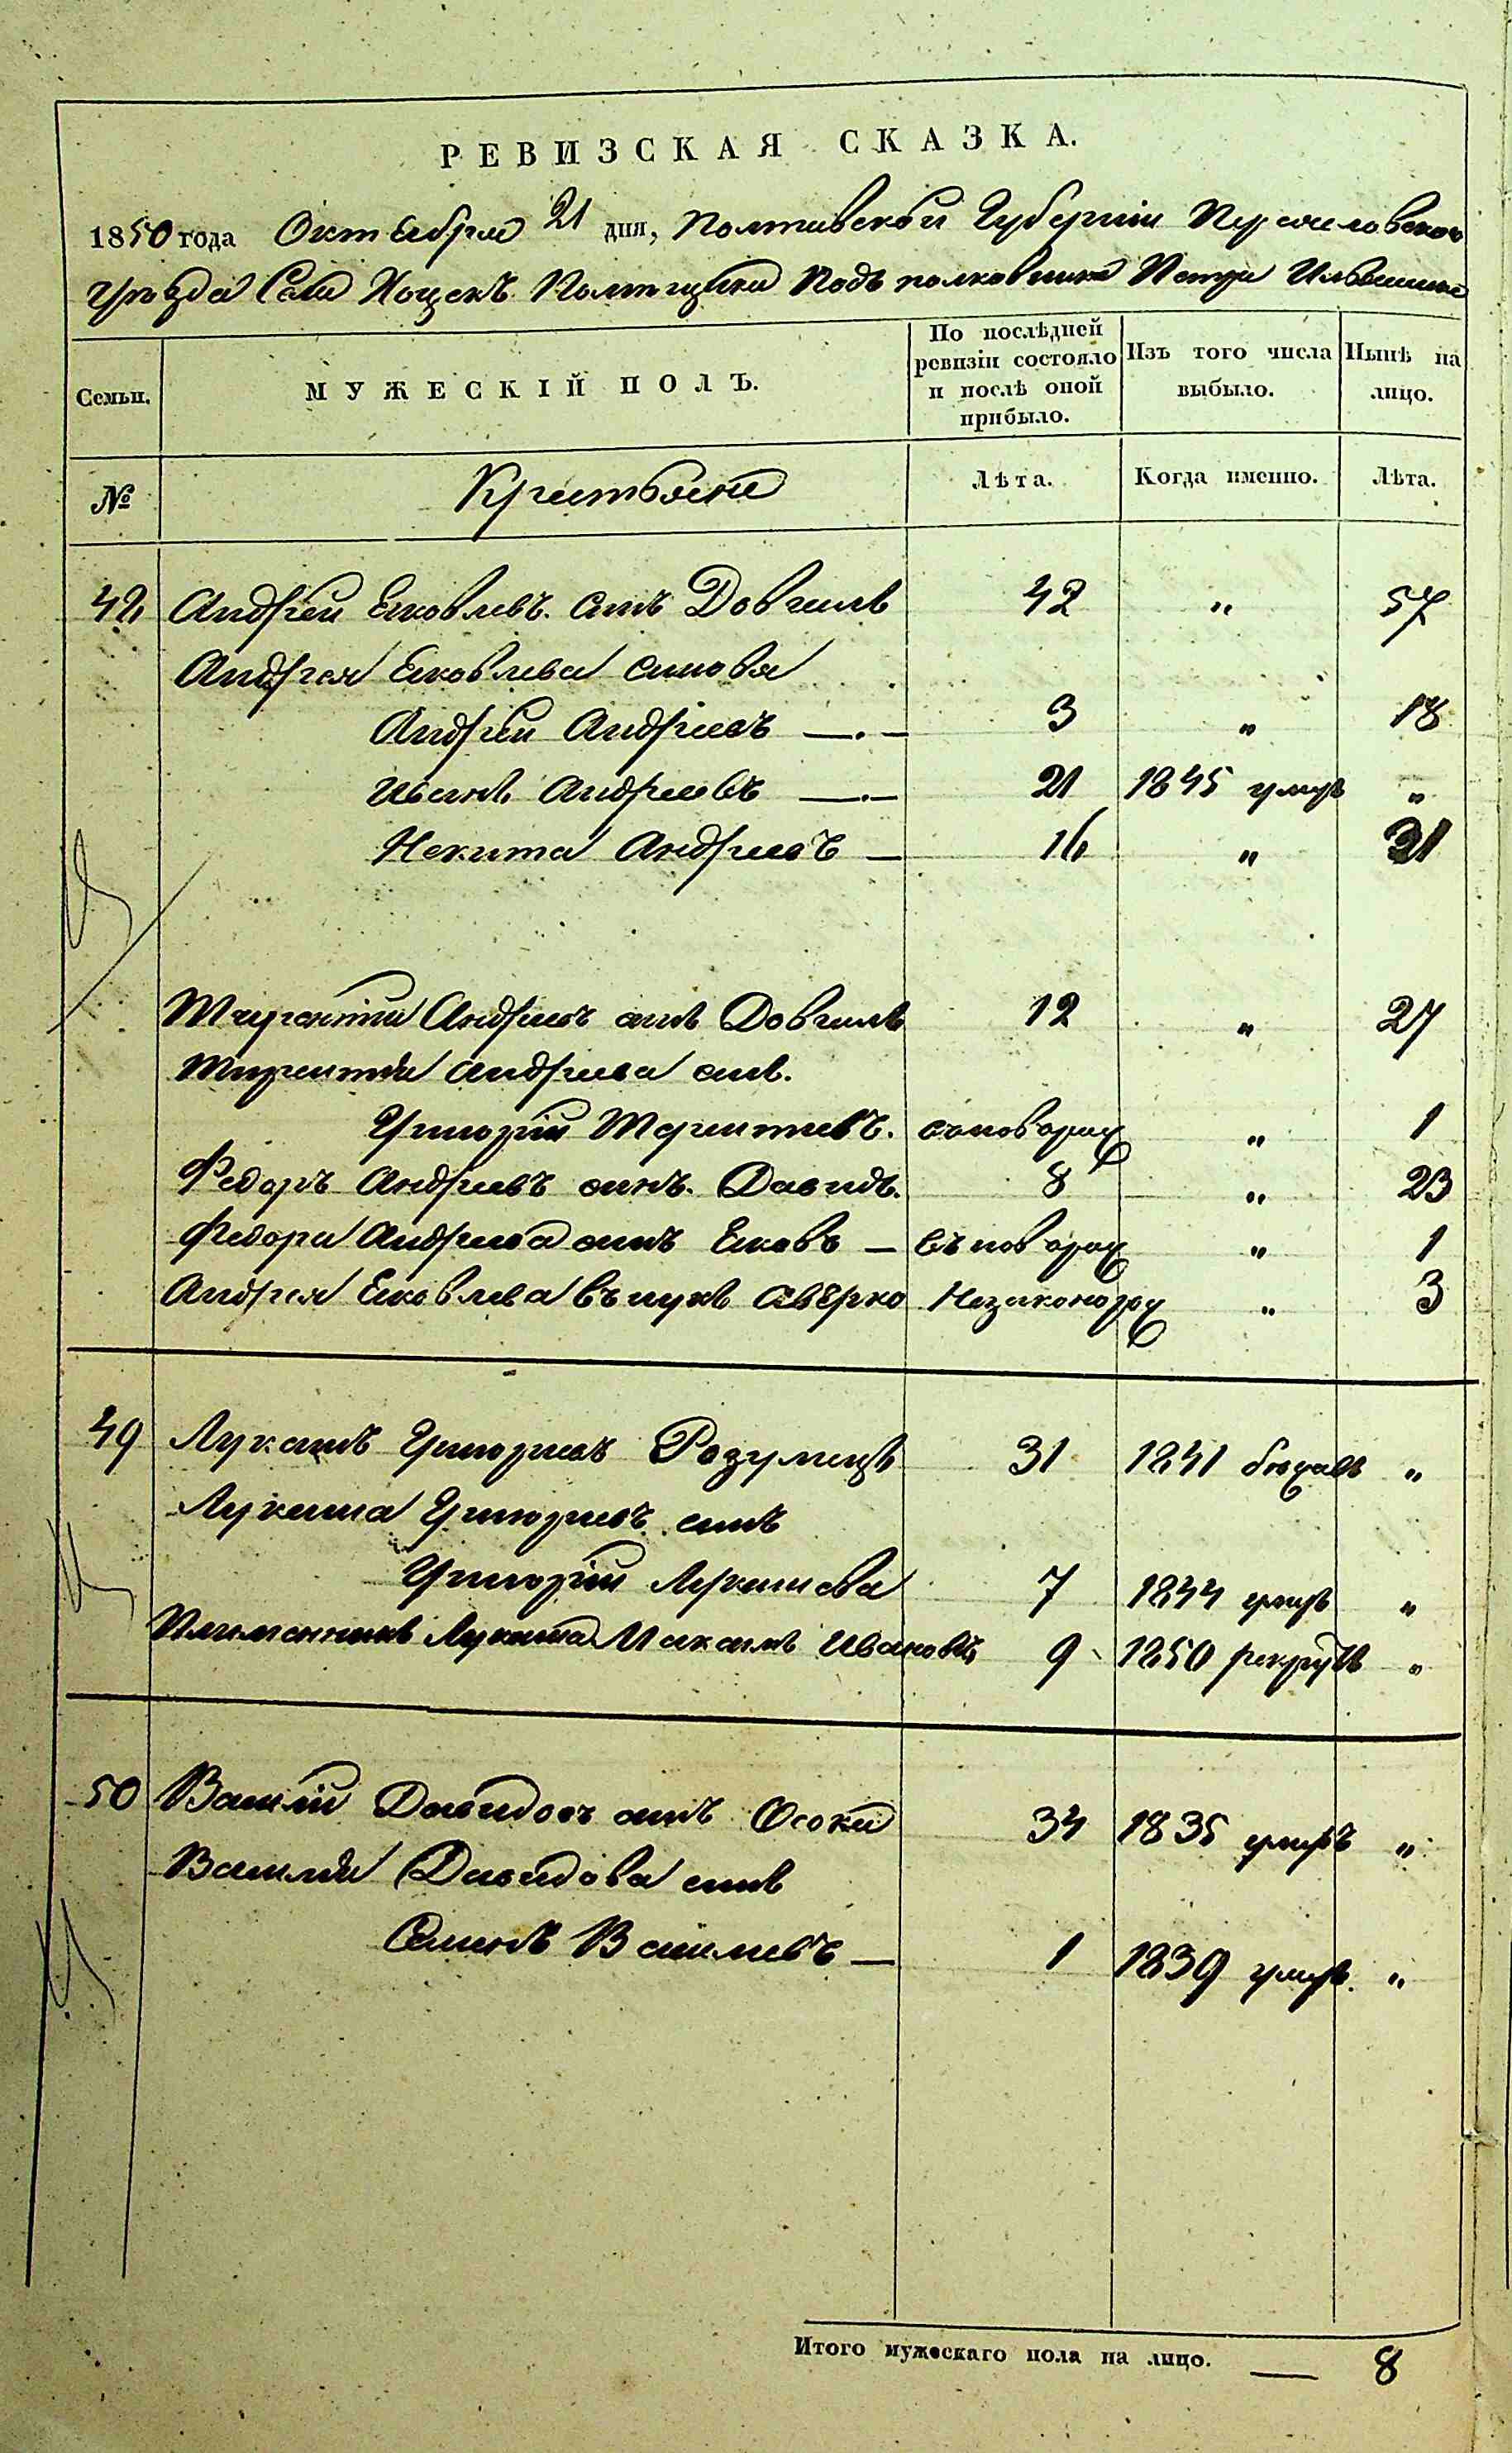 РЕВИЗСКАЯ СКАЗКА.
1850 года Октебрия 21 дня, Полтавской Губернии Переясловского
уезда Села Хоцекъ Помещика Подъполковника Петра Ильвыча
Семьи. МУЖЕСКІЙ ПОЛЪ. По послѣдней ревизіи состояло и послѣ оной прибыло. Изъ того числа выбыло. Нынѣ на лицо.
№ Крестьяне Лѣта. Когда именно. Лѣта.
42 Андрей Ековлевъ сынъ 42 „ 57
Андрея Ековлева синовя
Андрей Андриевъ —.— 3 „ 18
Иванъ Андриевъ —.— 21 1845 умеръ „
Некита Андриевъ — 16 „ 31
Андриевъ синъ 12 „ 27
Андриева синъ.
Григорій Терентиевъ. вноворож 1
Федоръ Андриевъ синъ. Давидъ. 8 „ 23
Федора Андриева синъ Ековъ — въноворож „ 1
Андрея Ековлева вънукъ Авѣрко Незаконорож „ 3
49 Лукашъ Григориевъ 31 1841 бежалъ „
Лукаша Григориевъ синъ
Григорій Лукашева 7 1844 умеръ „
Племенникъ Лукаша Максимъ Ивановъ 9 1850 рекрутъ „
50 Василій Давидовъ синъ Осока 34 1835 умеръ „
Василия Давидова синъ
Семенъ Василиевъ — 1 1839 умеръ. „
Итого мужескаго пола на лицо. — 8